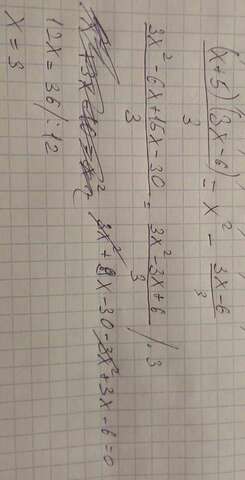 (x+5)(3x-6)/3 = x² - 3x-6/3
3x²-6x+15x-30/3 = 3x²-3x+6/3 /·3
3x²+9x-30-3x²+3x-6=0
12x = 36/:12
x = 3